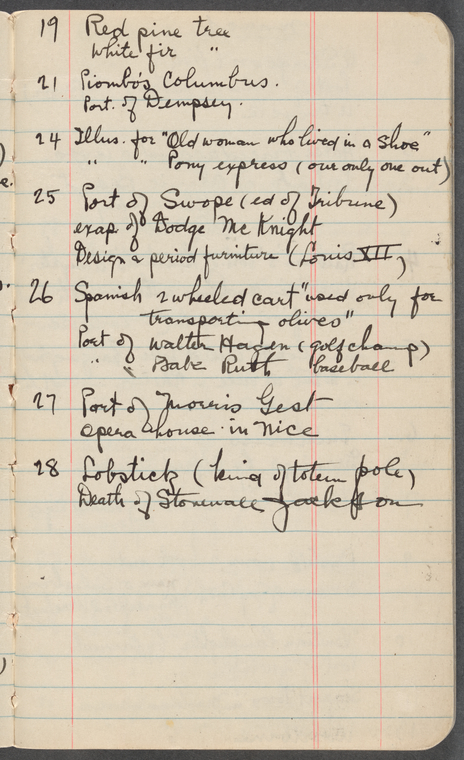 19 Red pine tree
White fir "
21 Piombo's Columbus.
Port. of Dempsey.
24 Illus. for "Old woman who lived in a Shoe"
" " Pony express (our only one out)
25 Port of Swope (ed of Tribune)
exap. of Dodge Mc Knight
Design & period furniture (Louis XII)
26 Spanish 2 wheeled cart "used only for
transporting olives"
Port of Walter Hagen (golf champ)
" " Babe Ruth baseball
27 Port of Morris Gest
opera house in Nice
28 Lobstick (kind of totem pole)
Death of Stonewall Jackson